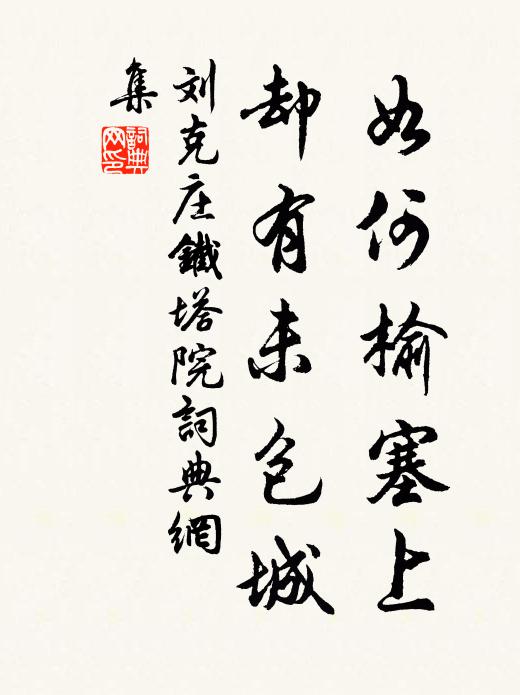 如何榆塞上
却有未包城
刘克庄鐵塔院詞典網
集
詞典網印